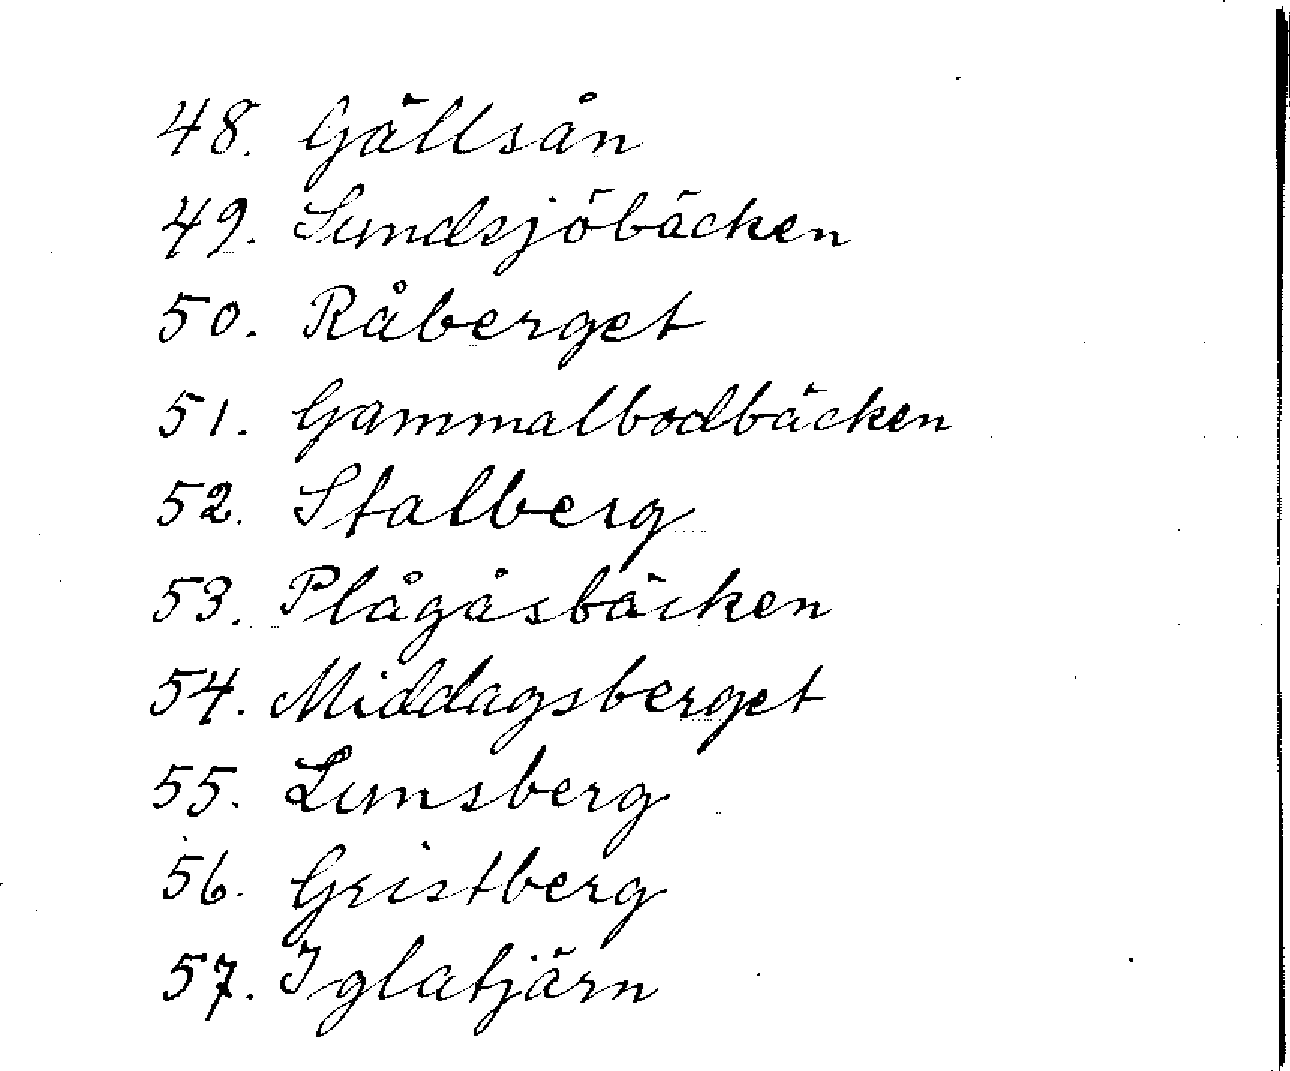 48. Gällsån
49. Sundsjöbäcken
50. Råberget
51. Gammalbodbäcken
52. Stalberg
53. Plågåsbäcken
54. Middagsberget
55. Lunsberg
56. Gristberg
57. Iglatjärn